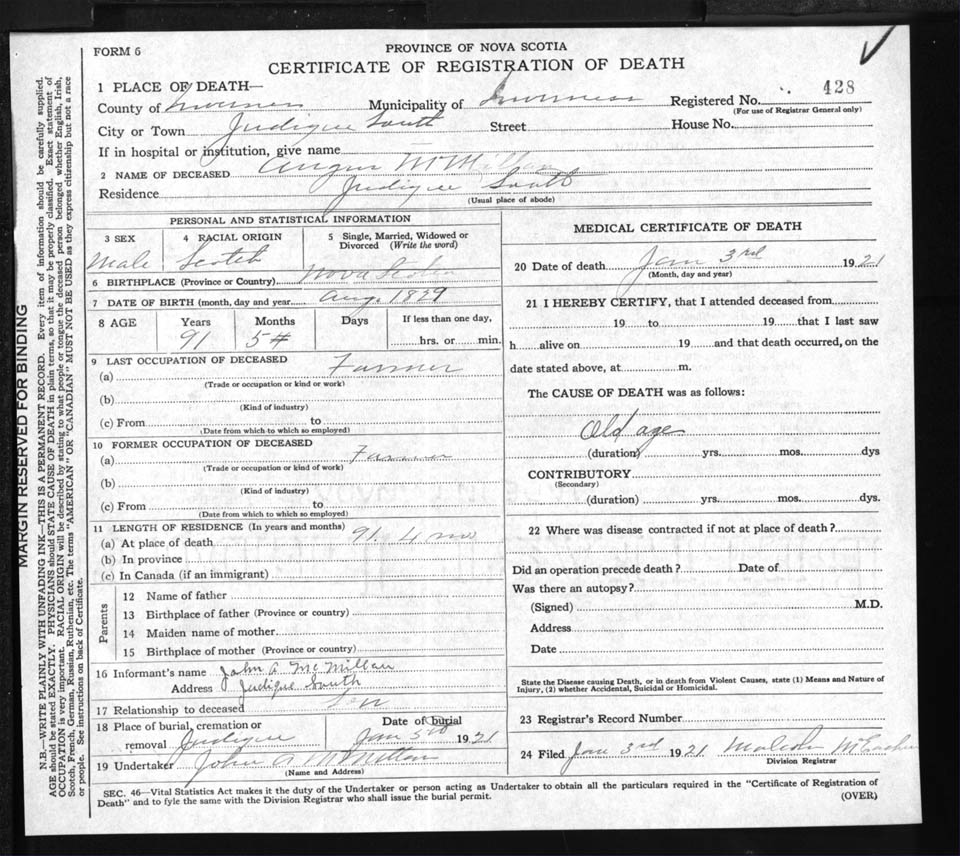 FORM 6
PROVINCE OF NOVA SCOTIA
CERTIFICATE OF REGISTRATION OF DEATH
428
1 PLACE OF DEATH—
County of Inverness Municipality of Inverness Registered No.
(For use of Registrar General only)
City or Town Judique South Street House No.
If in hospital or institution, give name
2 NAME OF DECEASED Angus McMillan
Residence Judique South
(Usual place of abode)
PERSONAL AND STATISTICAL INFORMATION
3 SEX 4 RACIAL ORIGIN 5 Single, Married, Widowed or Divorced (Write the word)
Male Scotch
6 BIRTHPLACE (Province or Country) Nova Scotia
7 DATE OF BIRTH (month, day and year) Aug. 1829
8 AGE Years Months Days If less than one day,
91 5 hrs. or min.
9 LAST OCCUPATION OF DECEASED
(a) Farmer
(Trade or occupation or kind or work)
(b)
(Kind of industry)
(c) From to
(Date from which to which so employed)
10 FORMER OCCUPATION OF DECEASED
(a) Farmer
(Trade or occupation or kind of work)
(b)
(Kind of industry)
(c) From to
(Date from which to which so employed)
11 LENGTH OF RESIDENCE (In years and months)
(a) At place of death 91. 4 mo
(b) In province
(c) In Canada (if an immigrant)
Parents
12 Name of father
13 Birthplace of father (Province or country)
14 Maiden name of mother
15 Birthplace of mother (Province or country)
16 Informant's name John A McMillan
Address Judique South
17 Relationship to deceased Son
18 Place of burial, cremation or removal Judique
Date of burial Jan 5th 1921
19 Undertaker John A McMillan
(Name and Address)
MEDICAL CERTIFICATE OF DEATH
20 Date of death Jan 3rd 1921
(Month, day and year)
21 I HEREBY CERTIFY, that I attended deceased from
19 to 19 that I last saw
h alive on 19 and that death occurred, on the
date stated above, at m.
The CAUSE OF DEATH was as follows:
Old age
(duration) yrs. mos. dys
CONTRIBUTORY
(Secondary)
(duration) yrs. mos. dys.
22 Where was disease contracted if not at place of death?
Did an operation precede death? Date of
Was there an autopsy?
(Signed) M.D.
Address
Date
State the Disease causing Death, or in death from Violent Causes, state (1) Means and Nature of
Injury, (2) whether Accidental, Suicidal or Homicidal.
23 Registrar's Record Number
24 Filed Jan 3rd 1921 Malcolm
Division Registrar
SEC. 46—Vital Statistics Act makes it the duty of the Undertaker or person acting as Undertaker to obtain all the particulars required in the "Certificate of Registration of
Death" and to fyle the same with the Division Registrar who shall issue the burial permit.
(OVER)
MARGIN RESERVED FOR BINDING
N.B.—WRITE PLAINLY WITH UNFADING INK—THIS IS A PERMANENT RECORD. Every item of information should be carefully supplied.
AGE should be stated EXACTLY. PHYSICIANS should STATE CAUSE OF DEATH in plain terms, so that it may be properly classified. Exact statement of
OCCUPATION is very important. RACIAL ORIGIN will be described by stating to what people or tongue the deceased person belonged whether English, Irish,
Scotch, French, German, Russian, Ruthenian, etc. The terms "AMERICAN" OR "CANADIAN" MUST NOT BE USED as they express citizenship but not a race
or people. See instructions on back of Certificate.